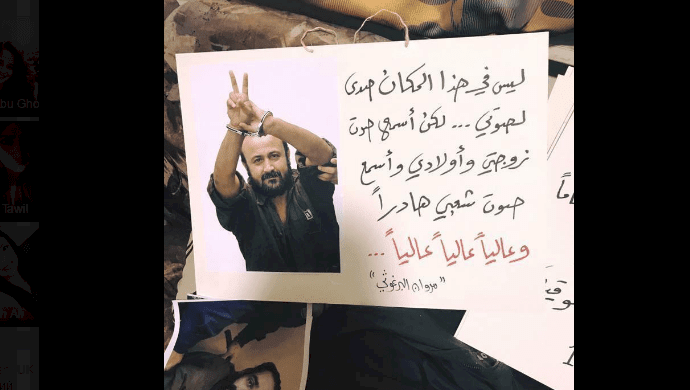 ليس في هذا المكان صدى
لصوتي ... لكن أسمع صوت
زوجتي وأولادي وأسمع
صوت شعبي هادراً
وعالياً عالياً عالياً ...
"مروان البرغوثي"
Tawil